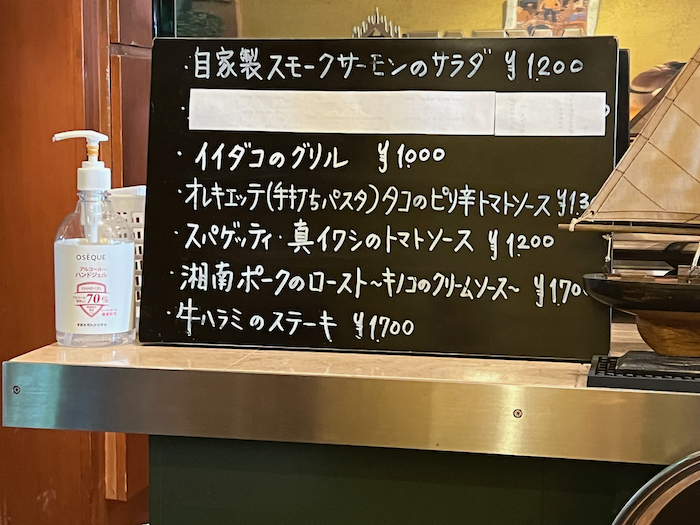 ・自家製スモークサーモンのサラダ ¥1200
・イイダコのグリル ¥1000
・オレキエッテ(手打ちパスタ)タコのピリ辛トマトソース ¥13
・スパゲッティ・真イワシのトマトソース ¥1200
・湘南ポークのロースト～キノコのクリームソース～ ¥1700
・牛ハラミのステーキ ¥1700
OSÈQUE
アルコール
ハンドジェル
70%